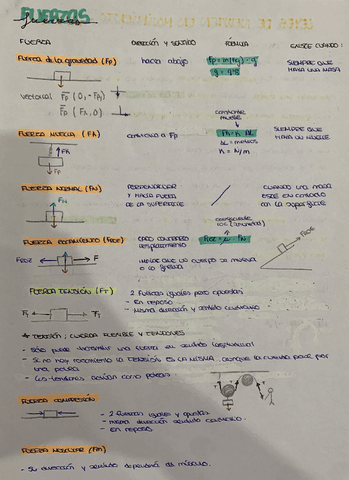 FUERZAS
FUERZA DIRECCIÓN Y SENTIDO FÓRMULA EXISTE CUANDO:
FUERZA de la GRAVEDAD (Fp) hacia abajo Fp = m(kg) · g SIEMPRE QUE HAYA UNA MASA
vectorial Fp (0, -Fp)
Fp (Fx, 0)
CONSTANTE MUELLE
FUERZA MUELLE (FK) CONTRARIO a Fp FK = K · ΔL SIEMPRE QUE HAYA UN MUELLE
ΔL = metros
K = N/m
FK
Fp
FUERZA NORMAL (FN) PERPENDICULAR Y HACIA FUERA DE LA SUPERFICIE CUANDO UNA MASA ESTÉ EN CONTACTO CON LA SUPERFICIE
FN
FUERZA ROZAMIENTO (FROZ) LADO CONTRARIO DESPLAZAMIENTO FROZ = μ · FN
FROZ F
FROZ
FUERZA TENSIÓN (FT) - 2 fuerzas iguales pero opuestas
- En reposo
- Misma dirección y sentido contrario
FT FT
* TENSIÓN: CUERDA FLEXIBLE Y TENSIONES
- Sólo puede transmitir una fuerza en sentido longitudinal
- Si no hay rozamiento la TENSIÓN ES LA MISMA, aunque la cuerda pase por una polea
- Los tendones actúan como poleas
FUERZA COMPRESIÓN
- 2 fuerzas iguales y opuestas
- misma dirección sentido contrario
- en reposo
FUERZA MUSCULAR (Fm)
- Su dirección y sentido dependerá del músculo.